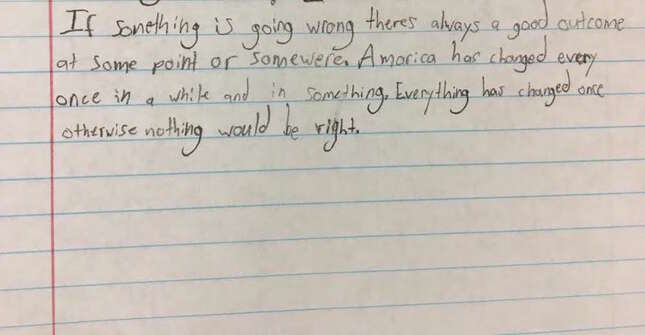 If Something is going wrong theres always a good outcome
at some point or somewere. Amarica has changed every
once in a while and in something. Everything has changed once
otherwise nothing would be right.